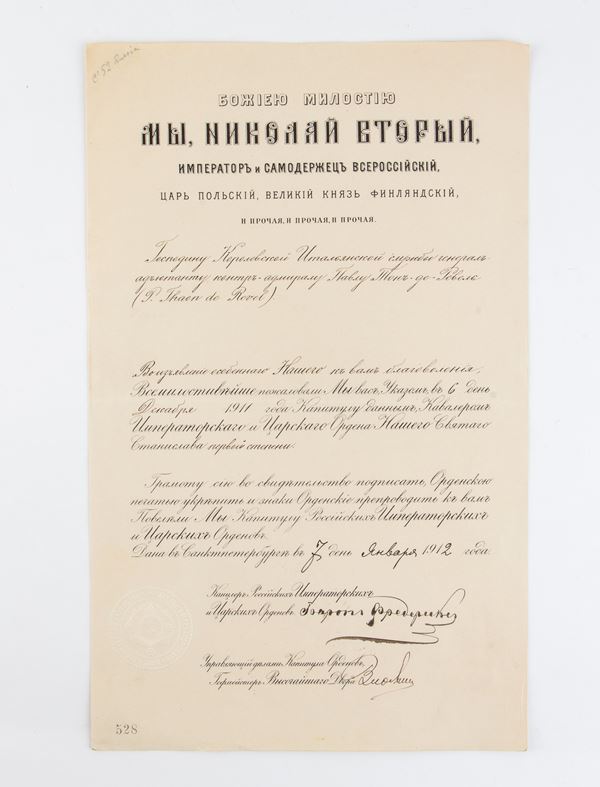 БОЖІЕЮ МИЛОСТІЮ
МЫ, НИКОЛАЙ ВТОРЫЙ,
ИМПЕРАТОРЪ и САМОДЕРЖЕЦЪ ВСЕРОССІЙСКІЙ,
ЦАРЬ ПОЛЬСКІЙ, ВЕЛИКІЙ КНЯЗЬ ФИНЛЯНДСКІЙ,
И ПРОЧАЯ, И ПРОЧАЯ, И ПРОЧАЯ.
Господину Королевской Итальянской службы генералъ
адъютанту контръ-адмиралу Павлу Таонъ-де-Ревелъ
(P. Thaon de Revel)
Во изъявленіе особеннаго Нашего къ вамъ благоволенія,
Всемилостивѣйше пожаловали Мы васъ, Указомъ, въ 6 день
Декабря 1911 года Капитулу даннымъ, Кавалеромъ
Императорскаго и Царскаго Ордена Нашего Святаго
Станислава первой степени.
Грамоту сію во свидѣтельство подписать, Орденскою
печатью укрѣпить и знаки Орденскіе препроводить къ вамъ
Повелѣли Мы Капитулу Россійскихъ Императорскихъ
и Царскихъ Орденовъ.
Дана въ Санктпетербургѣ въ 7 день Января 1912 года.
Канцлеръ Россійскихъ Императорскихъ
и Царскихъ Орденовъ Баронъ Фредериксъ
Управляющій дѣлами Капитула Орденовъ,
Гофмейстеръ Высочайшаго Двора
528